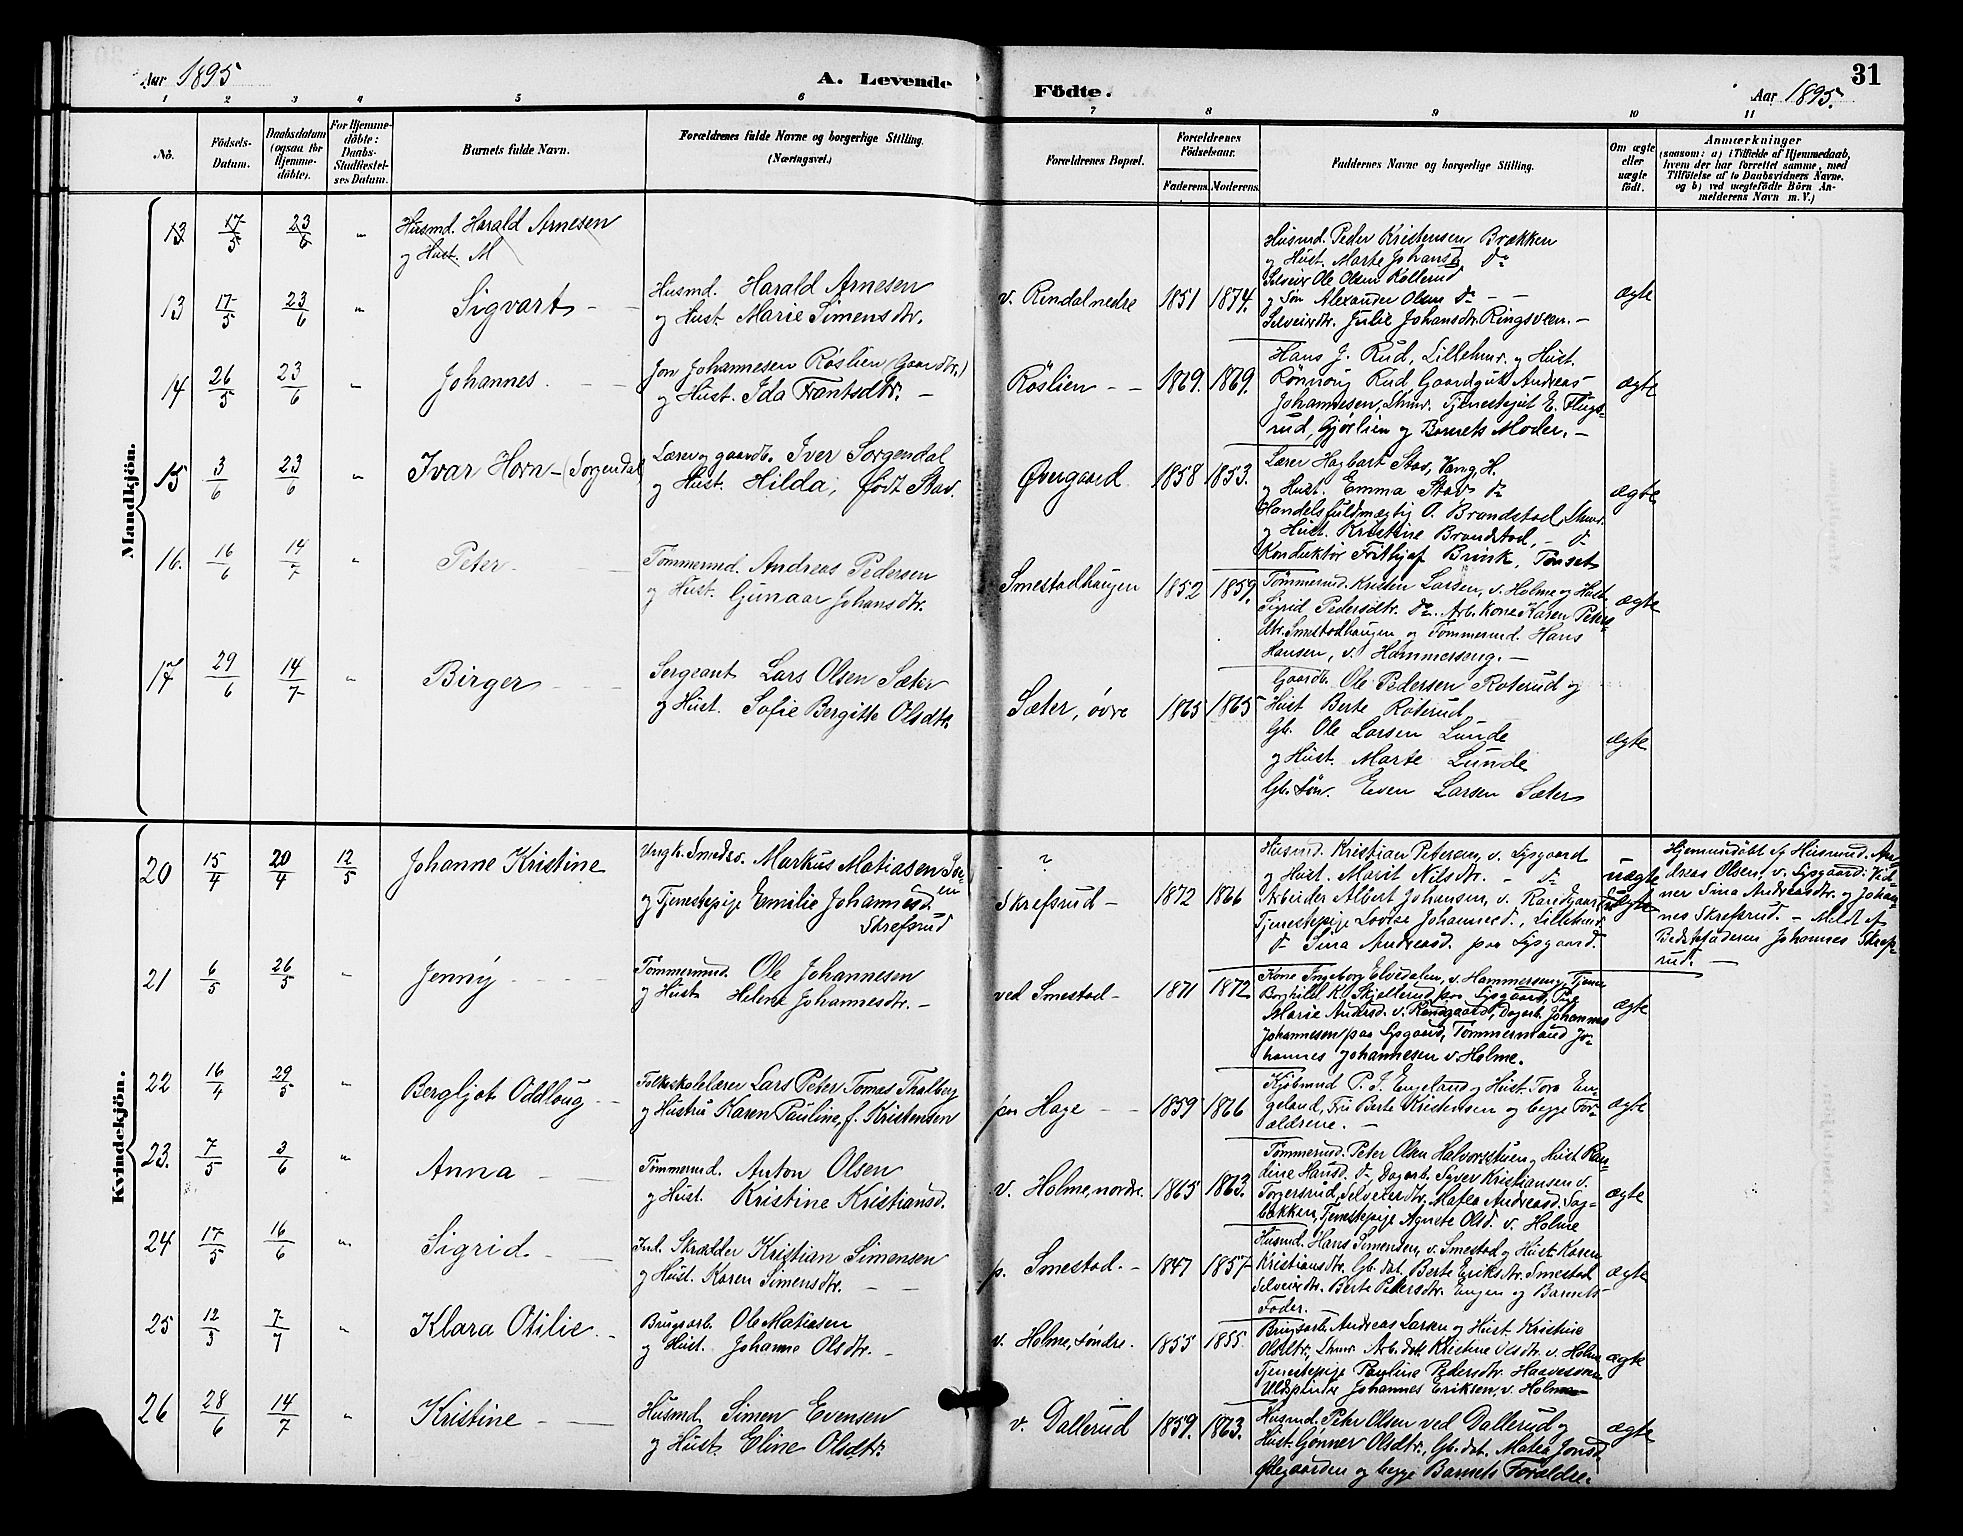 Aar 1895
A. Levende
Födte.
Aar 1895.
31
1 2 3 4 5 6 7 8 9 10 11
No.
Födsels-
Datum.
Daabsdatum
(ogsaa for
Hjemme-
döbte).
For Hjemme-
döbte:
Daabs-
Stadfæstel-
ses Datum.
Barnets fulde Navn.
Forældrenes fulde Navne og borgerlige Stilling.
(Næringsvei.)
Forældrenes Bopæl.
Forældrenes
Födselsaar.
Faderens. Moderens.
Faddernes Navne og borgerlige Stilling.
Om ægte
eller
uægte
födt.
Anmærkninger
(saasom: a) i Tilfælde af Hjemmedaab,
hvem der har forrettet samme, med
Tilföielse af to Daabsvidners Navne,
og b) ved uægtefödte Börn An-
melderens Navn m. V.)
Mandkjön.
13 17/5 23/6 "
Husmd. Harald Arnesen
og Hust. M
13 17/5 23/6 "
Sigvart
Husmd. Harald Arnesen
og Hust. Marie Simensdtr.
v. Rindal nedre
1851 1874.
Husmd. Peder Kristensen Brækken
og Hust. Marte Johansd. do
Selveier Ole Olsen Kollerud
og Søn Alexander Olsen do
Selveierdtr. Julie Johansdtr. Ringsveen.
ægte
14 26/5 23/6 "
Johannes.
Jon Johannesen Röslien (Gaardbr.)
og Hust. Ida Frantsdtr.
Röslien
1869. 1869.
Hans J. Rud, Lillehmr. og Hust.
Rönnoug Rud, Gaardgut Andreas
Johannesen, Lhmr. Tjenestepi. E. Flugs-
rud, Gjörlien og Barnets Moder.
ægte
15 3/6 23/6 "
Ivar Horn (Sorgendal)
Lærer og gaardb. Iver Sorgendal
og Hust. Hilda, født Stav.
Øvergaard
1858 1853.
Lærer Hagbart Stav, Vang, H.
og Hust. Emma Stav do
Handelsfuldmægtig O. Brandstad, Lhmr.
og Hust. Kristine Brandstad, do
Konduktör Frithjof Brink, Tønset
ægte
16. 16/6 14/7 "
Peter
Tömmermd. Andreas Pedersen
og Hust. Gunaar Johansdtr.
Smestadhaugen
1852 1859.
Tömmermd. Kristen Larsen, v. Holme og Hust.
Sigrid Pedersdtr. do. Arb. Kone Karen Peters-
dtr. Smestadhaugen og Tömmermd. Hans
Hansen, v. Hammerseng.
ægte
17 29/6 14/7 "
Birger
Sergeant Lars Olsen Sæter
og Hust. Sofie Bergitte Olsdtr.
Sæter, övre
1865 1865
Gaardb. Ole Pedersen Roterud og
Hust Berte Roterud
Gb. Ole Larsen Lunde
og Hust. Marte Lunde
Gb. Sön. Even Larsen Sæter
ægte
Kvindekjön.
20 15/4 20/4 12/5
Johanne Kristine
Ungk. Smedsv. Markus Matiasen
og Tjenestepige Emilie Johannesd.
Skrefsrud
?
Skrefsrud
1872 1866
Husmd. Kristian Petersen, v. Lysgaard
og Hust. Marit Nilsdtr. do
Arbeider Albert Johansen, v. Randgaard
Tjenestepige Lovise Johannesd., Lillehmr.
do Sina Andreasd. paa Lysgaard.
uægte
Hjemmedöbt af Husmd. An-
dreas Olsen, v. Lysgaard. Vid-
ner Sina Andreasdtr. og Johan-
nes Skrefsrud. Meldt af
Bedstefaderen Johannes Skrefs-
rud.
21 6/5 26/5 "
Jenny
Tömmermd. Ole Johannesen
og Hust. Helene Johannesdtr.
ved Smestad
1871 1872
Kone Ingeborg Elvedalen, v. Hammerseng, Tjenp.
Borghild K. Skjellerud paa Lysgaard, Pige
Marie Andersd. v. Randgaard, Dagarb. Johannes
Johannesen paa Lysgaard, Tömmermand Jo-
hannes Johannesen v. Holme.
ægte
22 16/4 29/5 "
Bergljot Oddloug
Folkeskolelærer Lars Peter Tomas Thalberg
og Hustru Karen Pauline, f. Kristensen
paa Hage
1859 1866
Kjöbmnd P. J. Engeland og Hust. Tora En-
geland, Fru Berte Kristensen og begge For-
ældrene.
ægte
23. 7/5 3/6 "
Anna
Tömmermd. Anton Olsen
og Hust. Kristine Kristiansd.
v. Holme, nordre.
1865 1863.
Tömmermd. Peter Olsen Halvorstuen og Hust. Ran-
dine Hansd. do. Dagarb. Syver Kristiansen v.
Torgersrud, Selveierdtr. Matea Andreasd. Sag-
bakken, Tjenestepige Agnete Olsd. v. Holme
ægte
24 17/5 16/6 "
Sigrid
Ind. Skrædder Kristian Simensen
og Hust. Karen Simensdtr.
p. Smestad.
1847 1857
Husmd. Hans Simensen, v. Smestad og Hust. Karen
Kristiansdtr. Gb. dat. Berte Eriksdtr. Smestad
Selveierdtr. Berte Pedersdtr. Engen og Barnets
Fader.
ægte
25 12/5 7/7 "
Klara Otilie
Brugsarb. Ole Matiasen
og Hust. Johanne Olsdtr.
v. Holme, söndre.
1855 1855.
Brugsarb. Andreas Larsen og Hust. Kristine
Olsdtr., Lhmr. Arb. dat. Kristine Olsdtr. v. Holme
Tjenestepige Pauline Pedersdtr. Haavesom
Uldspinder Johannes Eriksen, v. Holme
ægte
26 28/6 14/7 "
Kristine
Husmd. Simen Evensen
og Hust. Eline Olsdtr.
v. Dallerud
1859. 1863.
Husmd. Petr Olsen ved Dallerud og
Hust. Gönner Olsdtr., Gb. dat. Matea Jonsd.
Ödegaarden og begge Barnets Forældre.
ægte